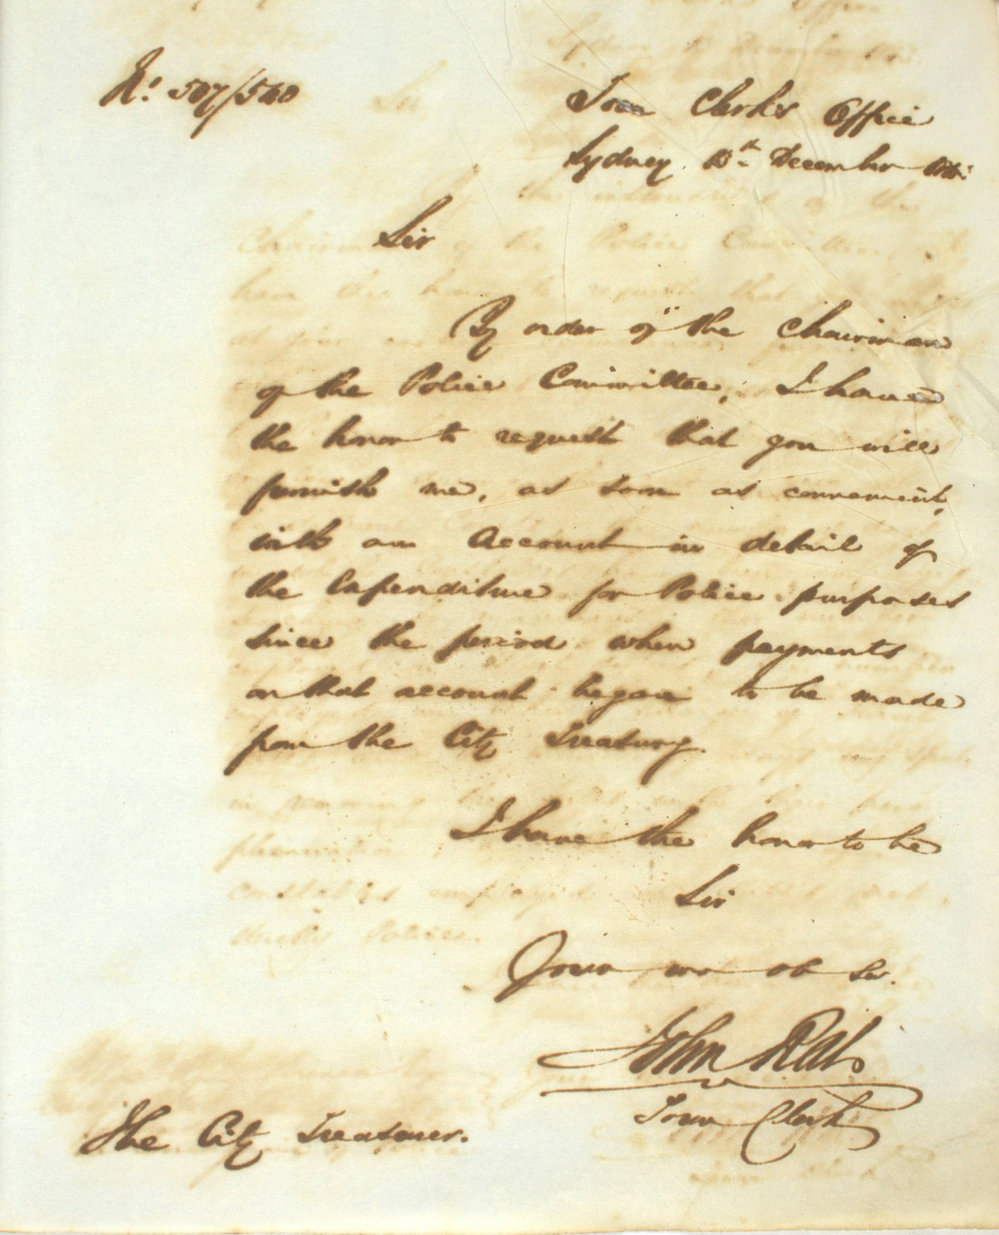 No. 507/540
Town Clerk's Office
Sydney 13th December
Sir
By order of the Chairman
of the Police Committee, I have
the honor to request that you will
furnish me, as soon as convenient,
with an Account in detail of
the Expenditure for Police purposes
since the period when payments
on that account began to be made
from the City Treasury.
I have the honor to be
Sir
Your mo ob Ser.
John Rae
Town Clerk
The City Treasurer.